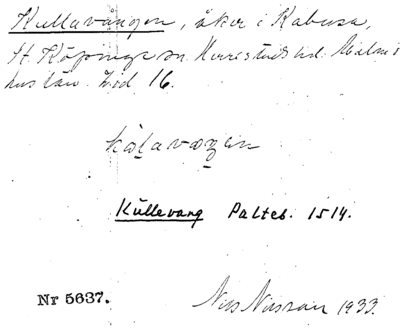 Kullavången, åker i Kabusa,
St. Köpinge sn. Herrestads hd. Malmö
hus län. Ljd 16.
kølavɔŋen
Kullevang Palteb. 1514.
Nr 5637.
Nils Nilsson 1933.